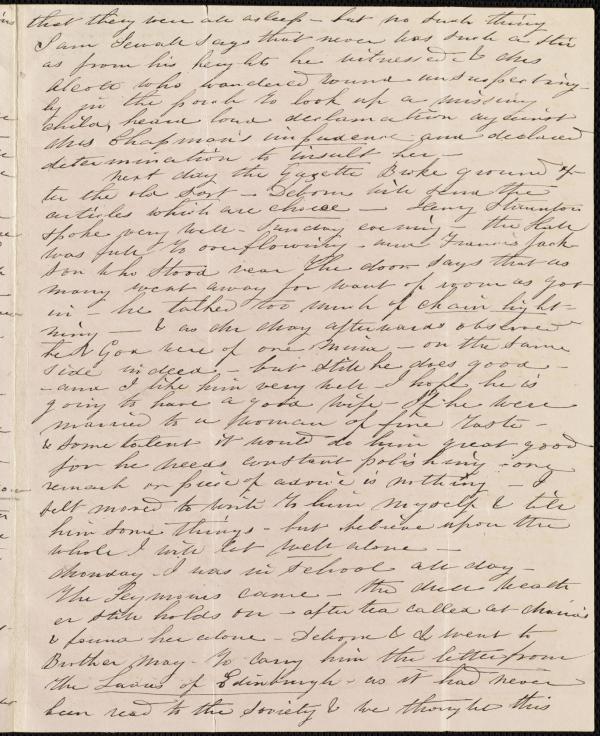 that they were all asleep - but no such thing
Sam Sewall says that never was such a stir
as from his height he witnessed & Mrs
Alcott who wandered round unsuspecting-
ly in the porch to look up a missing
child, heard loud declamation against
Mrs Chapman's impudence and declared
determination to insult her -
Next day the Gazette Broke ground af-
ter the old sort - Deborah will send the
articles which are choice - Henry Stanton
spoke very well - Sunday evening - the Hall
was full to overflowing - and Francis Jack
son who stood near the door says that as
many went away for want of room as got
in - he talked too much of chain light-
ning - & as Mr May afterwards observed
he & God were of one mind - on the same
side indeed, - but still he does good -
- and I like him very well - I hope he is
going to have a good wife - if he were
married to a woman of fine taste -
& some talent it would do him great good
for he needs constant polishing - one
remark or piece of advice is nothing - I
felt moved to write to him myself & tell
him some things - but believe upon the
whole I will let well alone -
Monday - I was in school all day -
The Seymours came - the dull weath
er still holds on - after tea called at Maria's
& found her alone - Deborah & I went to
Brother May - to carry him the letter from
the Ladies of Edinburgh - as it had never
been read to the Society & we thought this